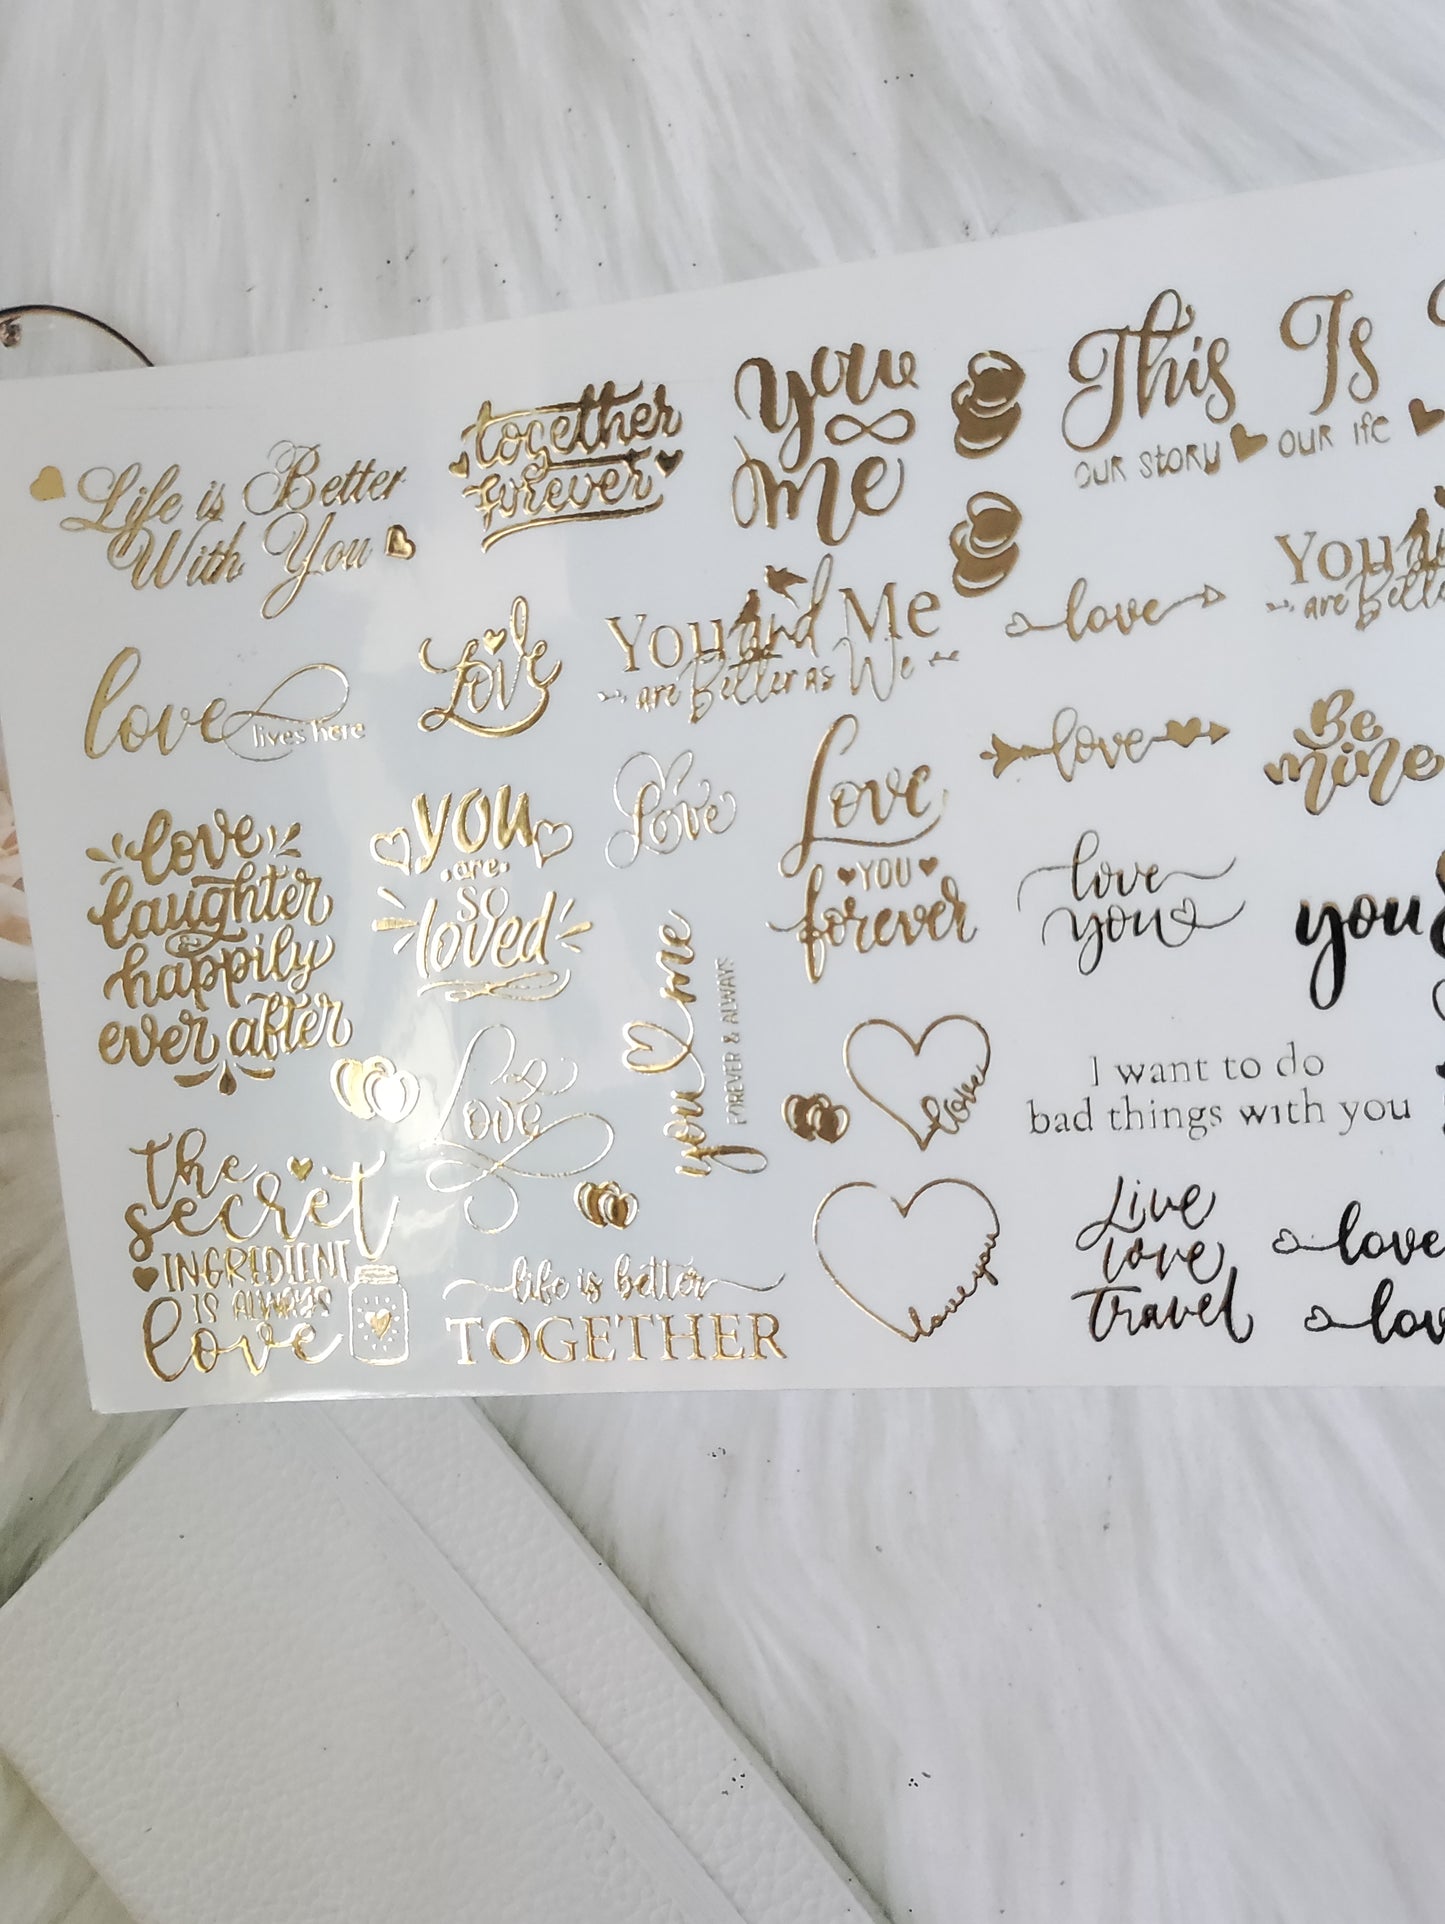 Life is Better
With You
together
forever
You
Me
This Is
our story
our life
love
lives here
Love
You and Me
are Better as We
love
You
are Better
love
laughter
&
happily
ever after
you
are
so
loved
Love
Love
YOU
forever
love
Be
mine
love
you
you
the
secret
INGREDIENT
IS ALWAYS
love
Love
you me
FOREVER & ALWAYS
love
I want to do
bad things with you
life is better
TOGETHER
love you
Live
love
Travel
love